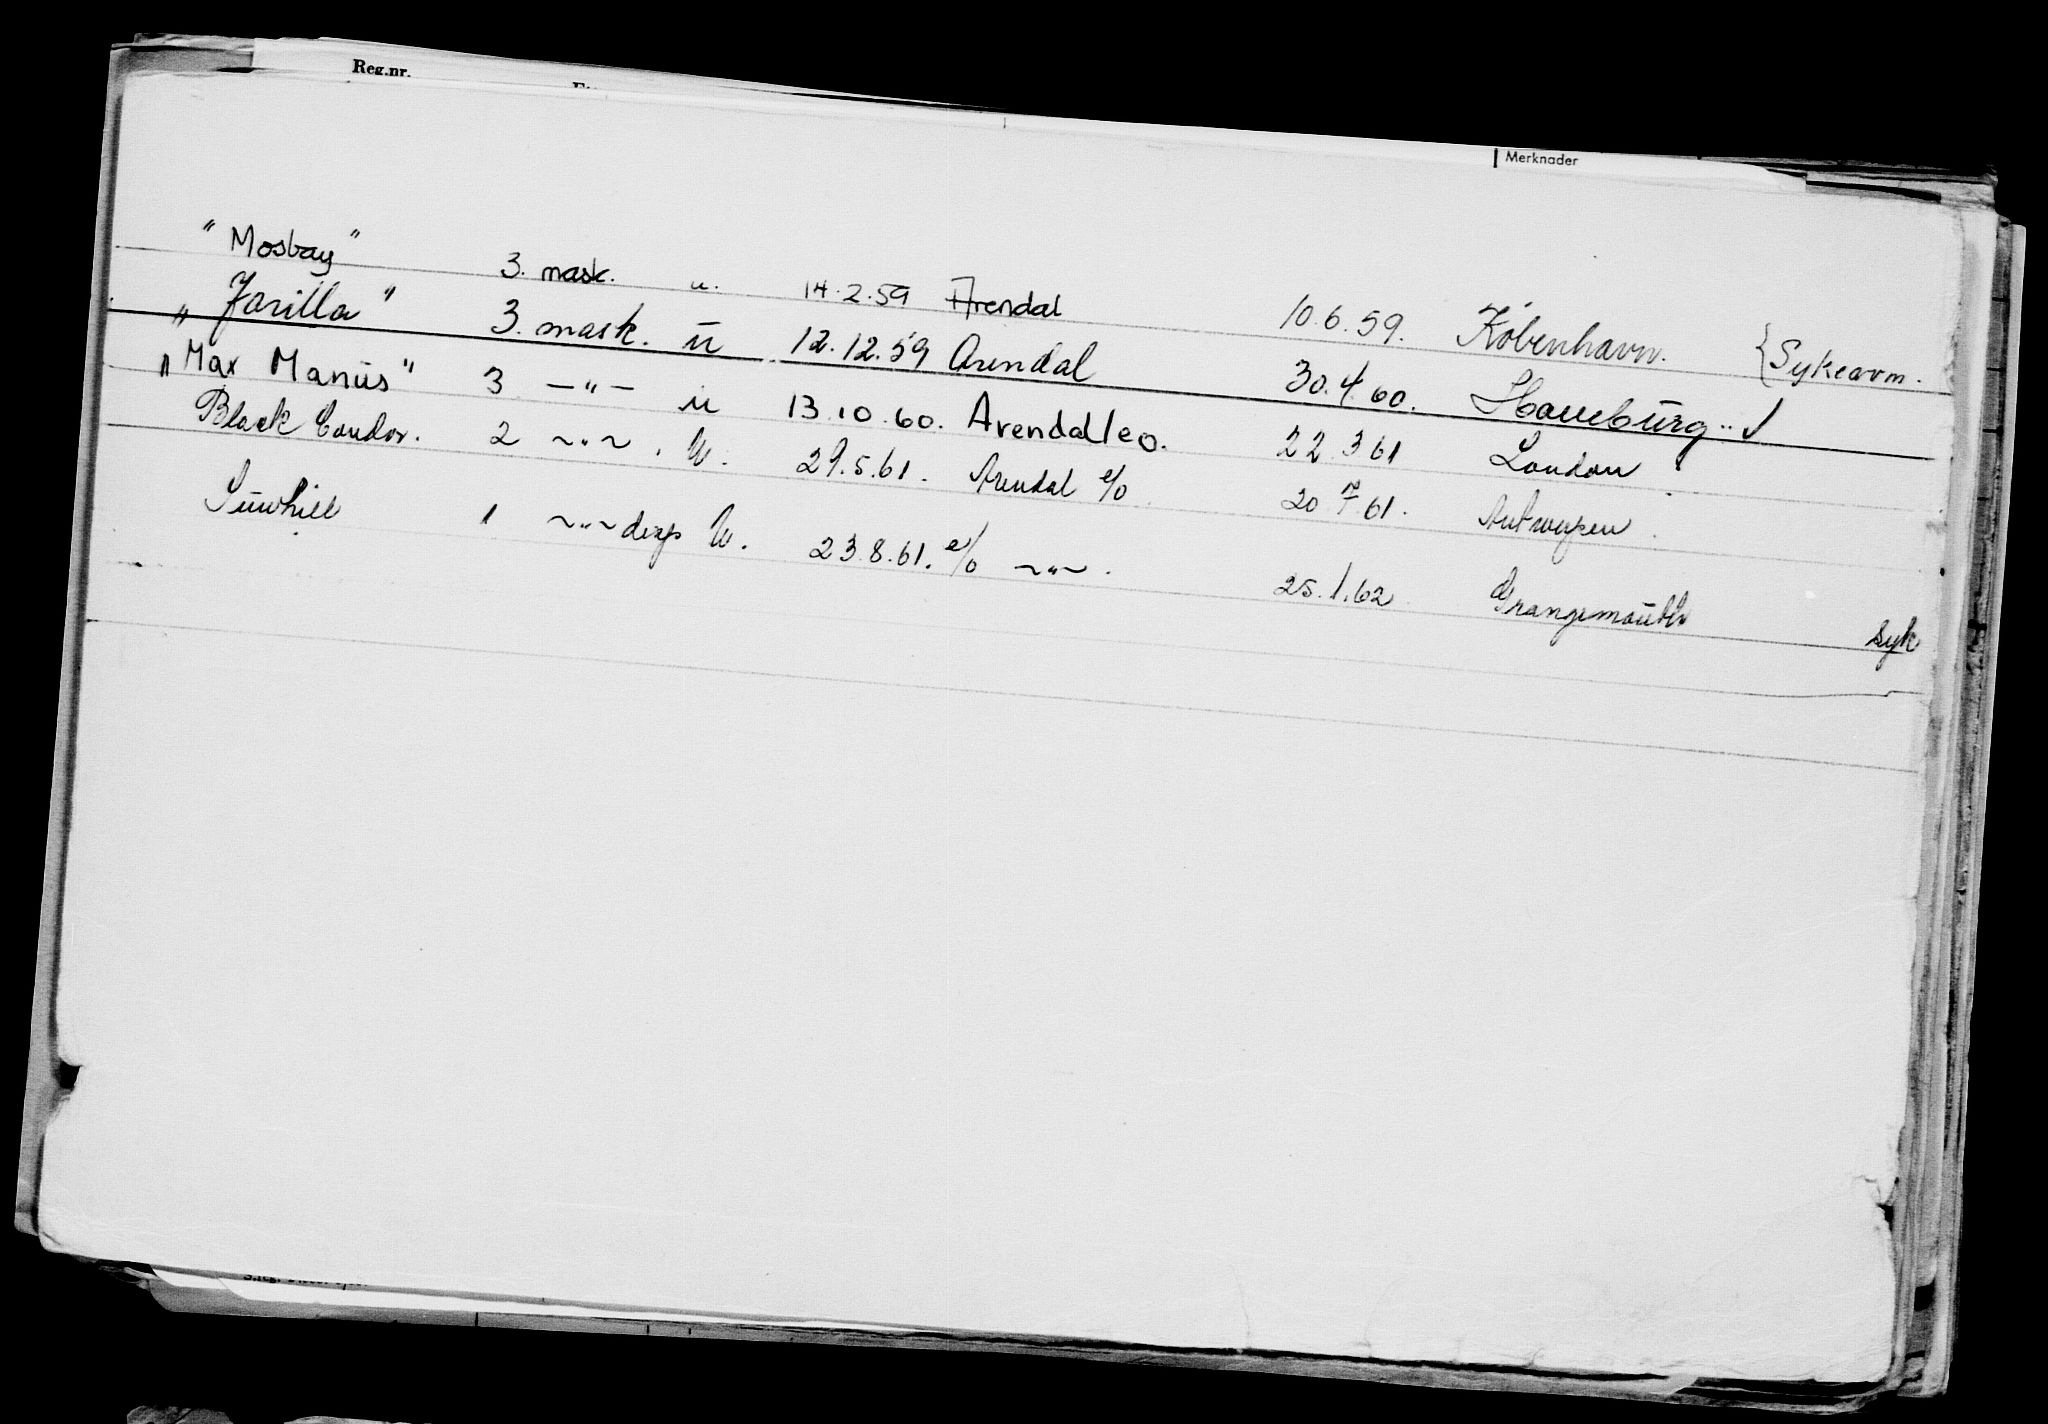 Reg.nr.
Merknader
"Mosbay" 3. mask. u. 14.2.59 Arendal 10.6.59. København. {Sykearm.
"Jarilla" 3. mask. u 12.12.59 Arendal 30.4.60. Hamburg
"Max Manus" 3 —"— u 13.10.60. Arendal 22.3.61 London
Black Condor. 2 ~"~ . u. 29.5.61. Arendal e/o 20.7.61. Antwerpen
Sunhill 1 ~"~ disp u. 23.8.61. e/o ~"~. 25.1.62 Grangemouth syk